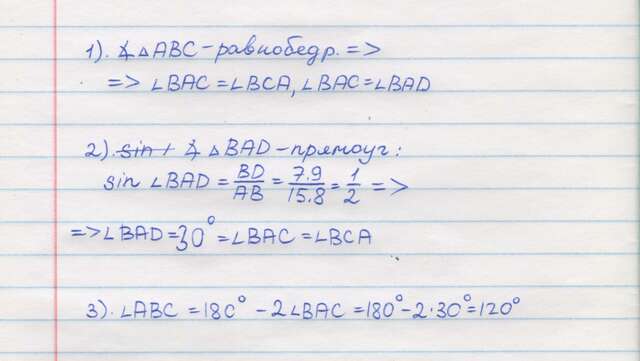 1). ∡ △ABC - равнобедр. =>
=> ∠BAC = ∠BCA, ∠BAC = ∠BAD
2). sin ∠ ∡ △BAD - прямоуг:
sin ∠BAD = BD/AB = 7.9/15.8 = 1/2 =>
=> ∠BAD = 30° = ∠BAC = ∠BCA
3). ∠ABC = 180° - 2∠BAC = 180° - 2·30° = 120°